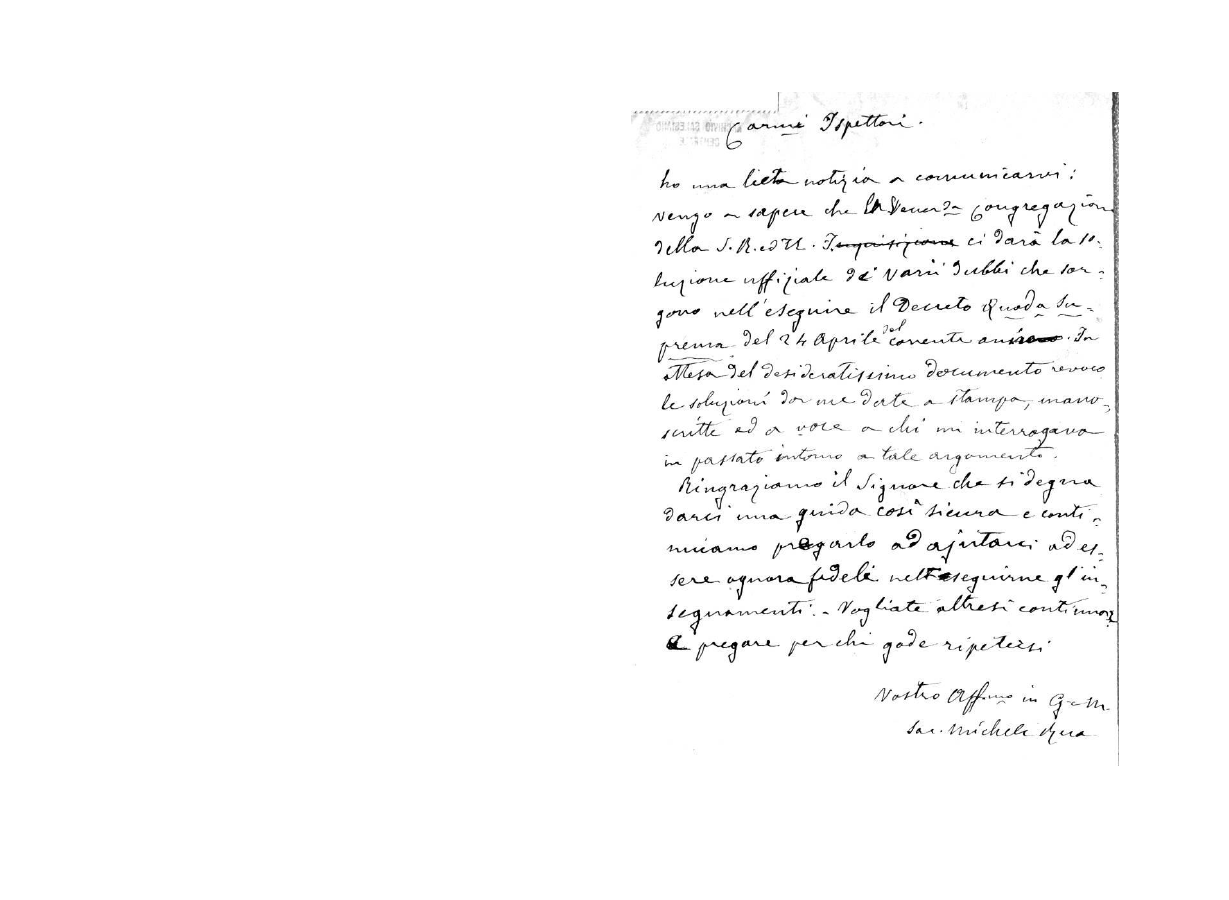 Carmi Ispettori.
ho una lieta notizia a comunicarvi:
vengo a sapere che la Venerda Congregazione
della S. R. ed U. Inquisizione ci darà la so-
luzione uffiziale dei varii dubbi che sor-
gono nell'eseguire il Decreto Quod a Su-
prema del 24 Aprile del corrente anno. In
attesa del desideratissimo documento revoco
le soluzioni da me date a stampa, mano-
scritte ed a voce a chi mi interrogava
in passato intorno a tale argomento.
Ringraziamo il Signore che si degna
darci una guida così sicura e conti-
nuiamo pregarlo ad ajutarci ad es-
sere ognora fedeli nell'eseguirne gl'in-
segnamenti. - Vogliate altresì continuare
a pregare per chi gode ripetersi
Vostro Affmo in G. e M.
Sac. Michele Rua